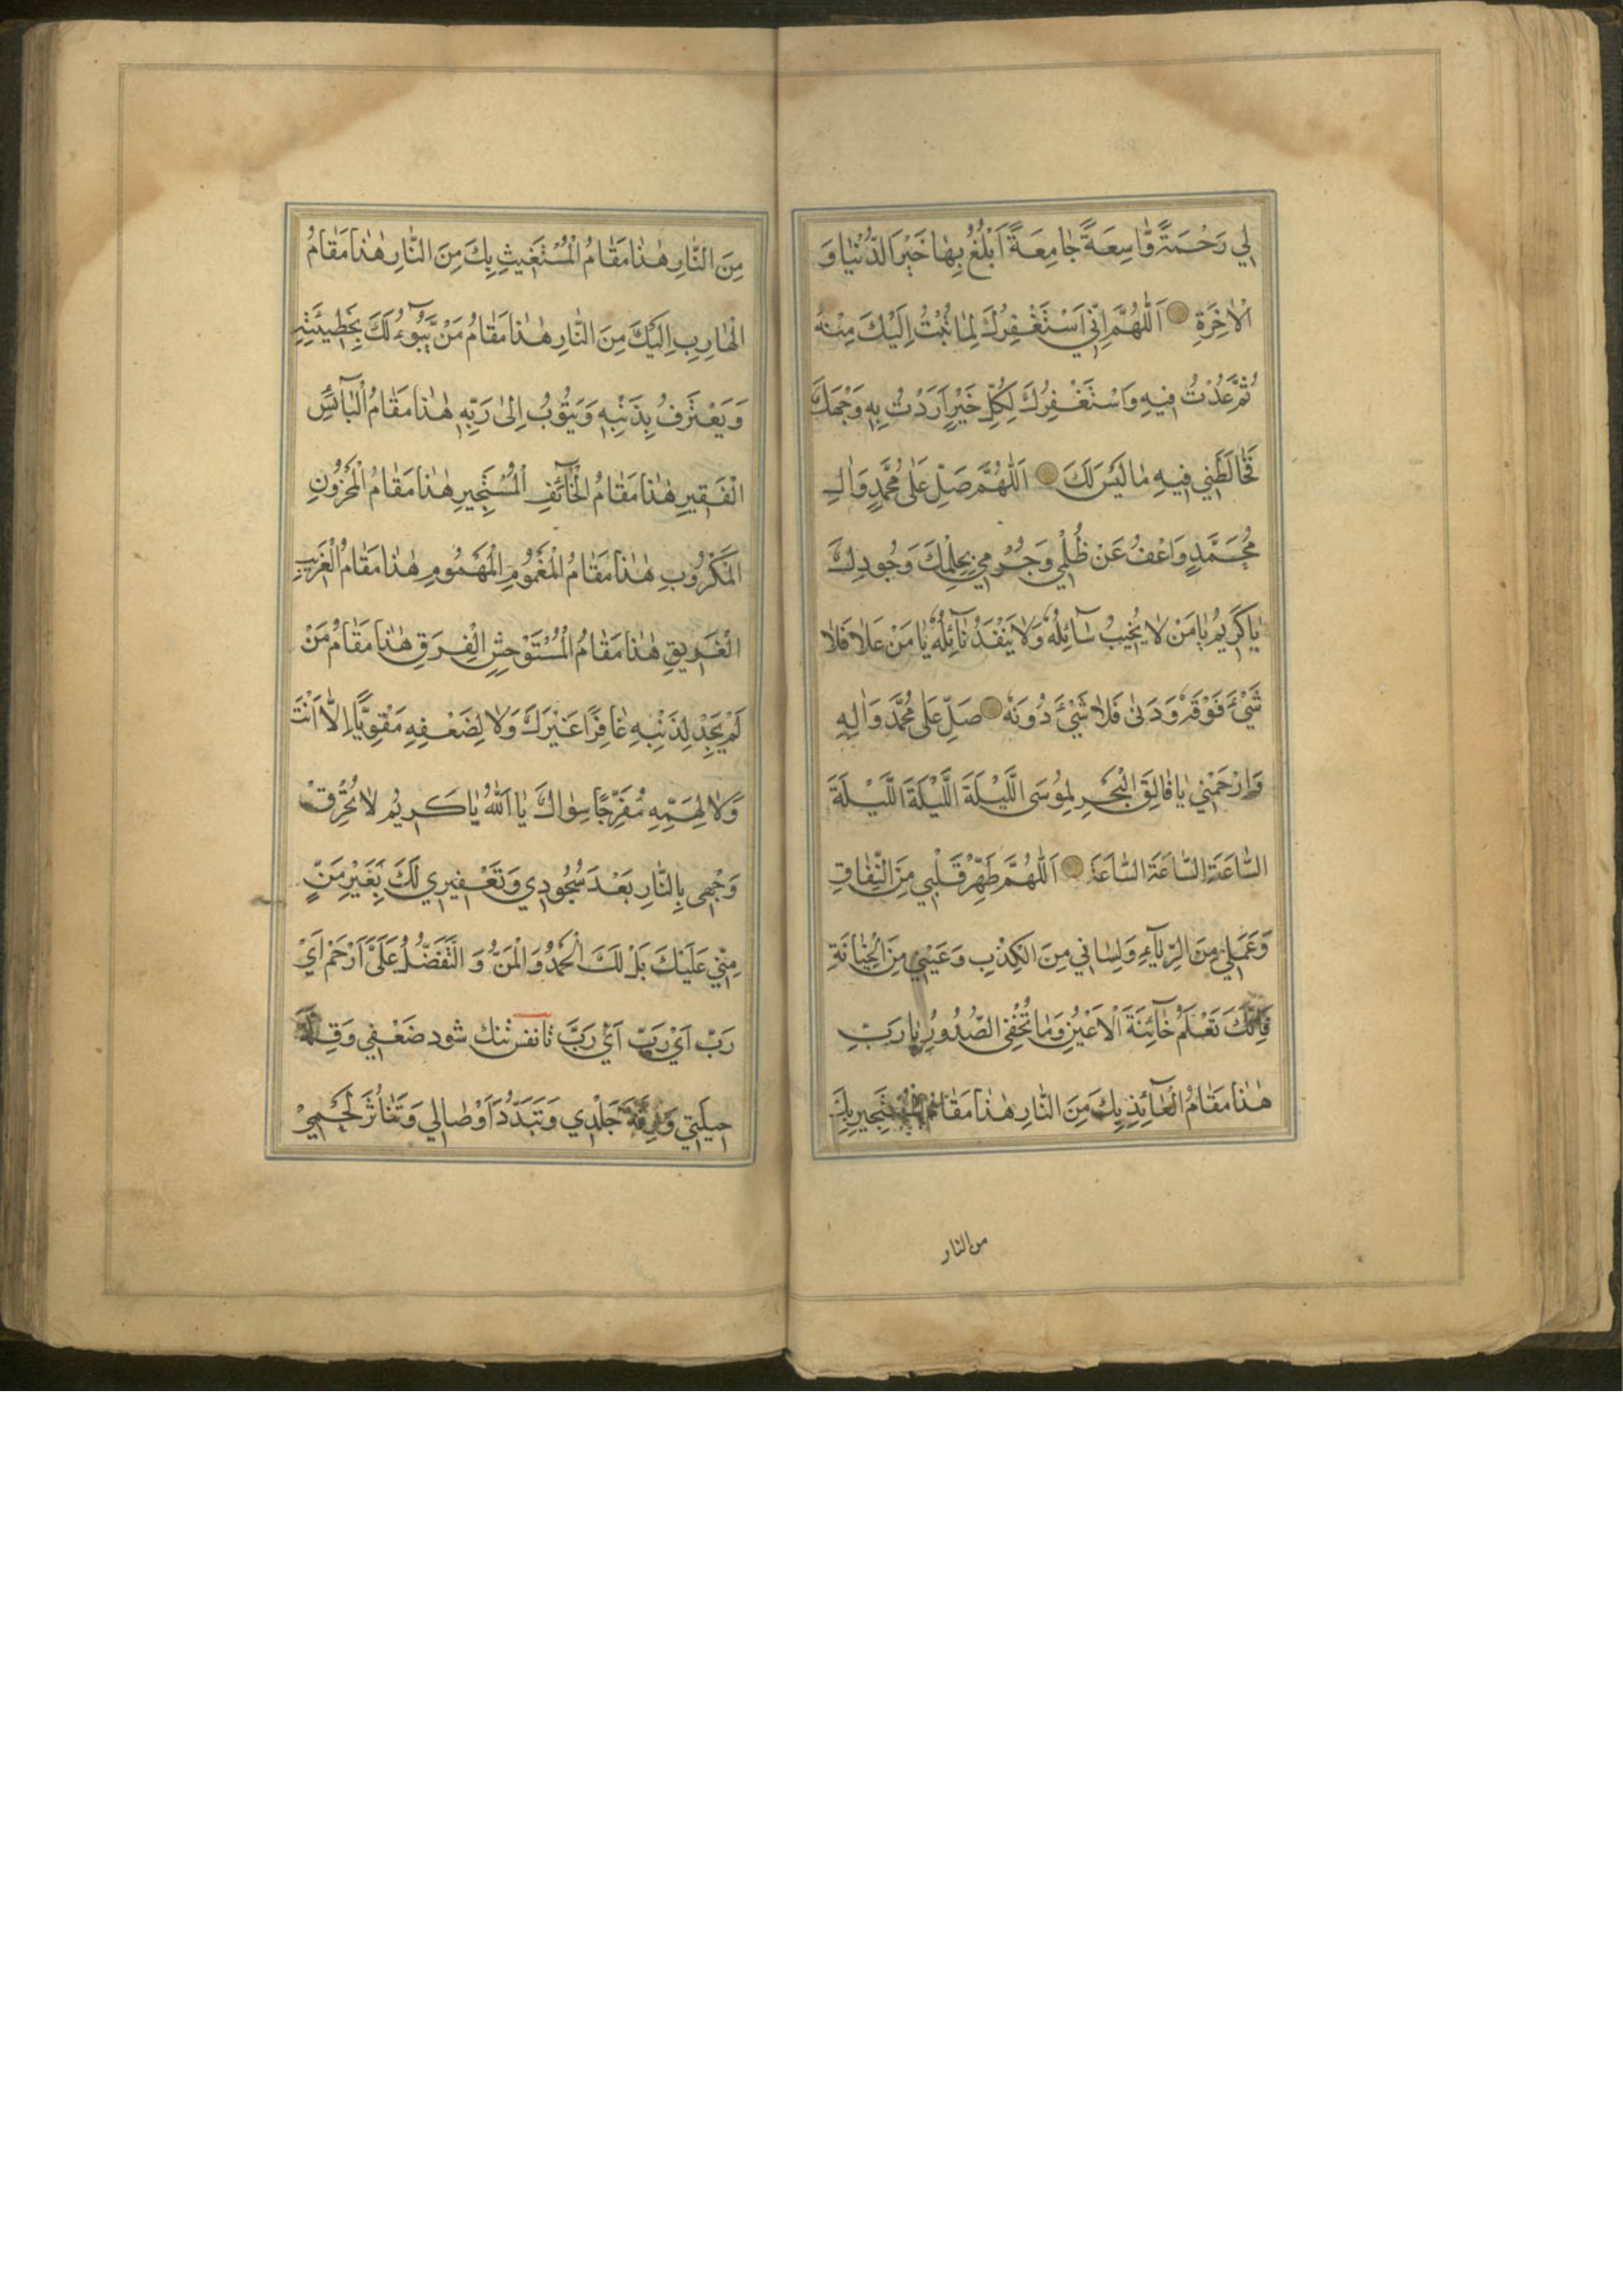 لِي رَحْمَةً وَاسِعَةً جَامِعَةً اَبْلُغُ بِهَا خَيْرَ الدُّنْيَا وَ
الْاٰخِرَةِ اَللّٰهُمَّ اِنِّي اَسْتَغْفِرُكَ لِمَا تُبْتُ اِلَيْكَ مِنْهُ
ثُمَّ عُدْتُ فِيهِ وَاَسْتَغْفِرُكَ لِكُلِّ خَيْرٍ اَرَدْتُ بِهِ وَجْهَكَ
فَخَالَطَنِي فِيهِ مَا لَيْسَ لَكَ اَللّٰهُمَّ صَلِّ عَلٰى مُحَمَّدٍ وَاٰلِ
مُحَمَّدٍ وَاعْفُ عَنْ ظُلْمِي وَجُرْمِي بِحِلْمِكَ وَجُودِكَ
يَا كَرِيمُ يَا مَنْ لَا يُخَيِّبُ سَآئِلُهُ وَلَا يَنْفَدُ نَآئِلُهُ يَا مَنْ عَلَا فَلَا
شَيْءَ فَوْقَهُ وَدَنٰى فَلَا شَيْءَ دُونَهُ صَلِّ عَلٰى مُحَمَّدٍ وَاٰلِهِ
وَارْحَمْنِي يَا فَالِقَ الْبَحْرِ لِمُوسَى اللَّيْلَةَ اللَّيْلَةَ اللَّيْلَةَ
السَّاعَةَ السَّاعَةَ السَّاعَةَ اَللّٰهُمَّ طَهِّرْ قَلْبِي مِنَ النِّفَاقِ
وَعَمَلِي مِنَ الرِّيَآءِ وَلِسَانِي مِنَ الْكِذْبِ وَعَيْنِي مِنَ الْخِيَانَةِ
فَاِنَّكَ تَعْلَمُ خَآئِنَةَ الْاَعْيُنِ وَمَا تُخْفِي الصُّدُورُ يَا رَبِّ
هٰذَا مَقَامُ الْعَآئِذِ بِكَ مِنَ النَّارِ هٰذَا مَقَامُ الْمُسْتَجِيرِ بِكَ
من النار
مِنَ النَّارِ هٰذَا مَقَامُ الْمُسْتَغِيثِ بِكَ مِنَ النَّارِ هٰذَا مَقَامُ
الْهَارِبِ اِلَيْكَ مِنَ النَّارِ هٰذَا مَقَامُ مَنْ يَبُوٓءُ لَكَ بِخَطِيئَتِهِ
وَيَعْتَرِفُ بِذَنْبِهِ وَيَتُوبُ اِلٰى رَبِّهِ هٰذَا مَقَامُ الْبَآئِسِ
الْفَقِيرِ هٰذَا مَقَامُ الْخَآئِفِ الْمُسْتَجِيرِ هٰذَا مَقَامُ الْمَحْزُونِ
الْمَكْرُوبِ هٰذَا مَقَامُ الْمَغْمُومِ الْمَهْمُومِ هٰذَا مَقَامُ الْغَرِيبِ
الْغَرِيقِ هٰذَا مَقَامُ الْمُسْتَوْحِشِ الْفَرِقِ هٰذَا مَقَامُ مَنْ
لَمْ يَجِدْ لِذَنْبِهِ غَافِرًا غَيْرَكَ وَلَا لِضَعْفِهِ مُقَوِّيًا اِلَّا اَنْتَ
وَلَا لِهَمِّهِ مُفَرِّجًا سِوَاكَ يَا اَللّٰهُ يَا كَرِيمُ لَا تُحْرِقْ
وَجْهِي بِالنَّارِ بَعْدَ سُجُودِي وَتَعْفِيرِي لَكَ بِغَيْرِ مَنٍّ
مِنِّي عَلَيْكَ بَلْ لَكَ الْحَمْدُ وَالْمَنُّ وَ التَّفَضُّلُ عَلَيَّ اَرْحَمْ اَيْ
رَبِّ اَيْ رَبِّ اَيْ رَبِّ تا نفس تنك شود ضَعْفِي وَقِلَّةَ
حِيلَتِي وَرِقَّةَ جِلْدِي وَتَبَدُّدَ اَوْصَالِي وَتَنَاثُرَ لَحْمِي